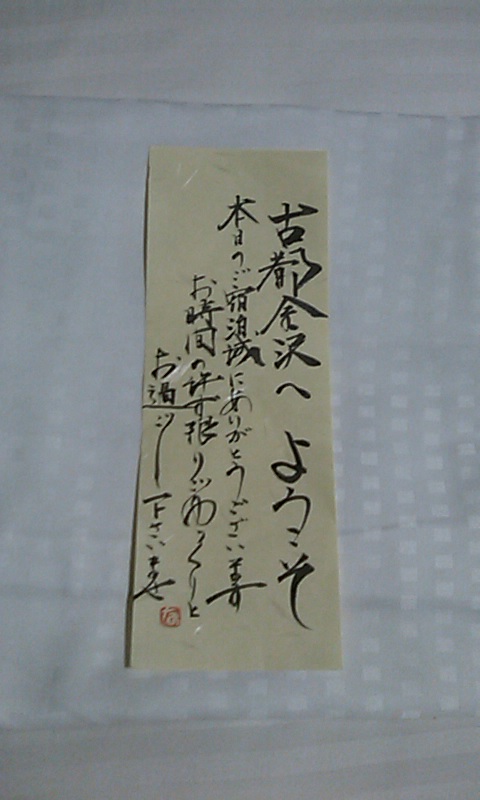 古都金沢へようこそ
本日のご宿泊誠にありがとうございます
お時間の許す限りごゆっくりと
お過ごし下さいませ